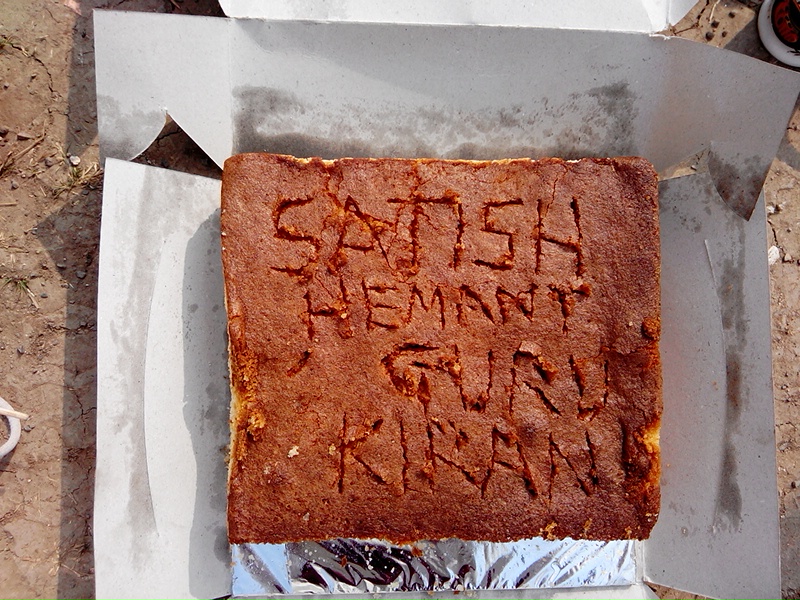 SATISH
HEMANT
GURU
KIRAN